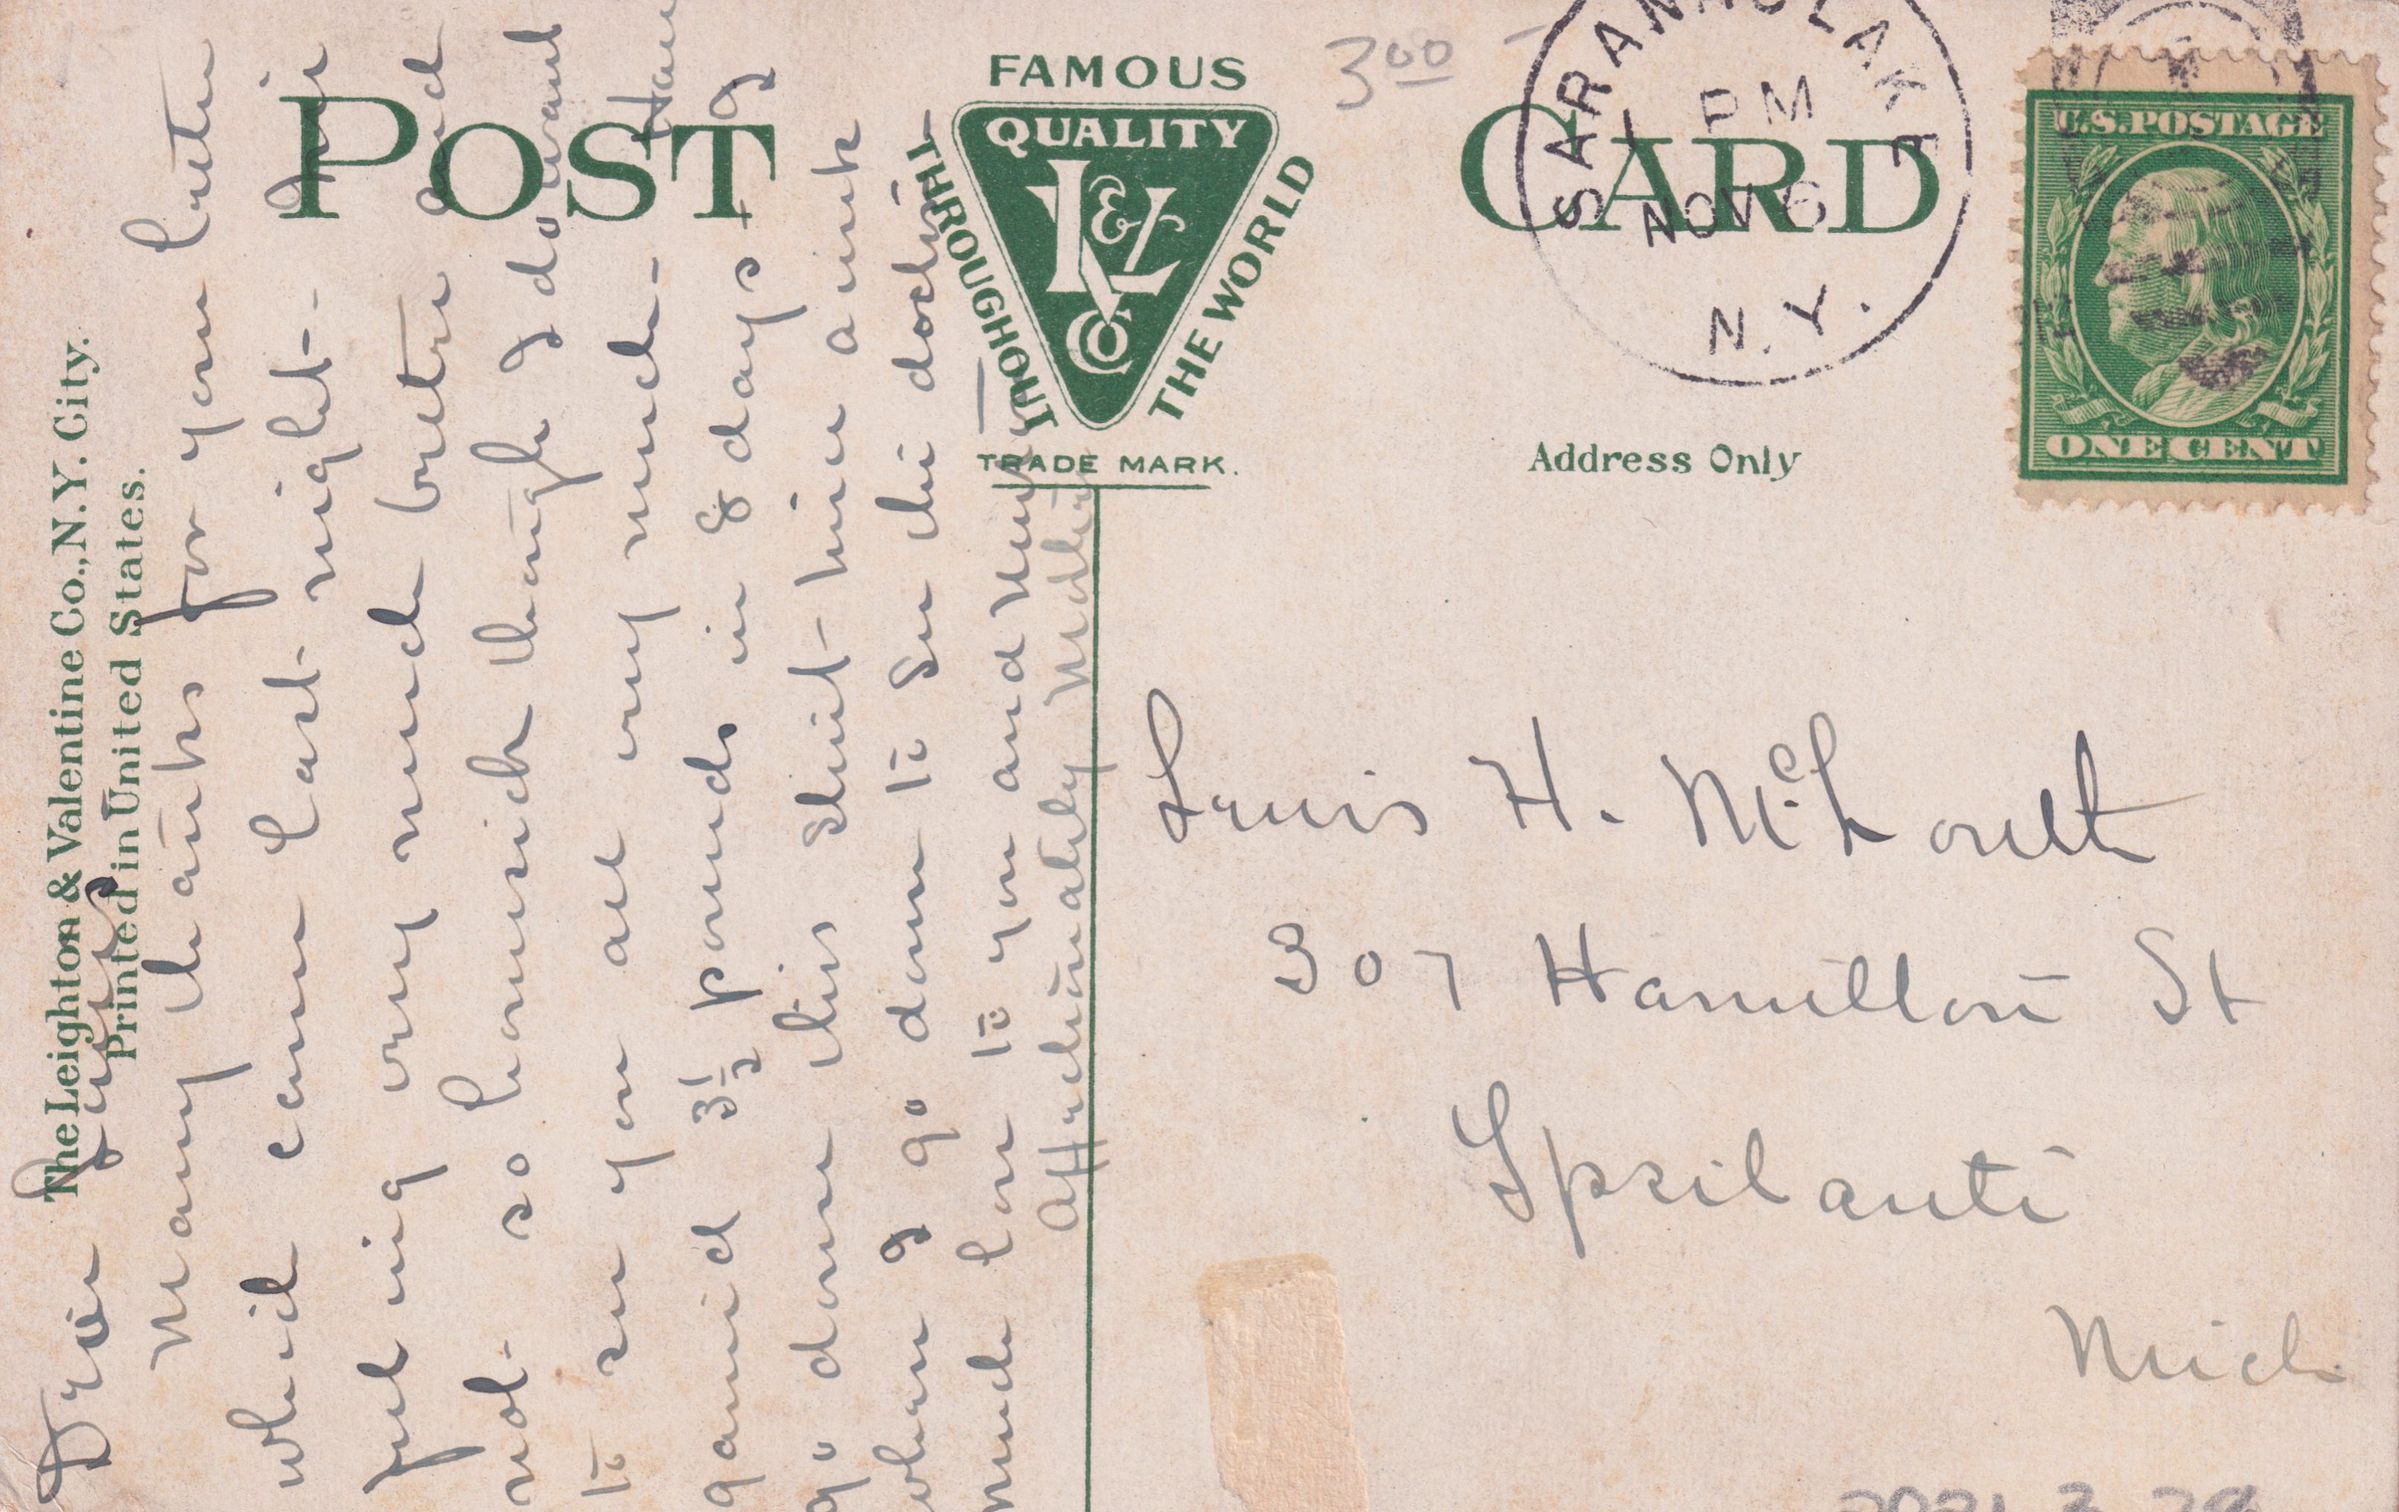 POST CARD
FAMOUS
QUALITY
THROUGHOUT
THE WORLD
TRADE MARK.
Address Only
SARANAC LAKE
PM
NOV 6
N.Y.
U.S. POSTAGE
ONE CENT
3 00
The Leighton & Valentine Co., N.Y. City.
Printed in United States.
Dear Louis
Many thanks for your letter
which came last night. I am
feeling very much better and
not so homesick though I do want
to see you all very much. Have
gained 3½ pounds in 8 days. I
go down this street here a ink
when I go down to see the doctor.
Much love to you and
Affectionately Mother
Louis H. McLouth
307 Hamilton St
Ypsilanti
Mich
2021.3.28